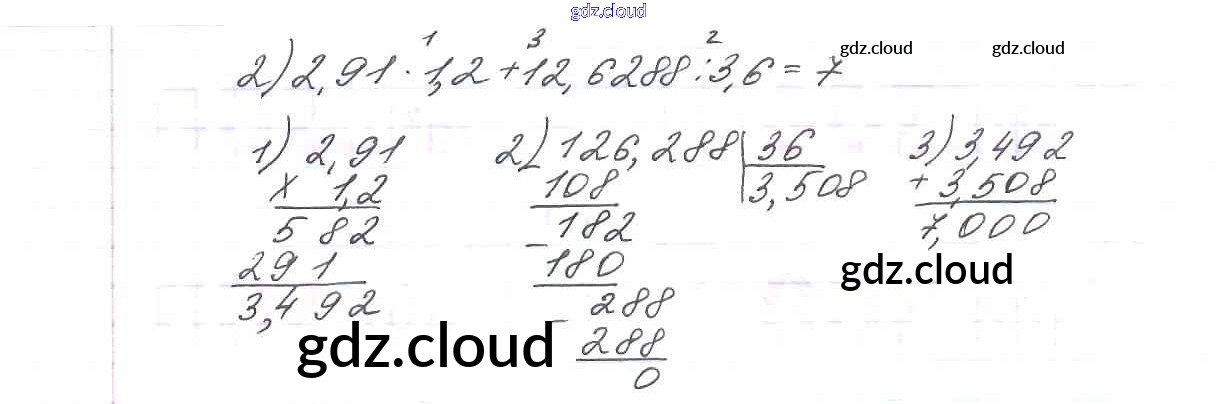 gdz.cloud
1 3 2
2) 2,91 · 1,2 + 12,6288 : 3,6 = 7
gdz.cloud gdz.cloud
1) 2,91
× 1,2
5 82
291
3,492
2) 126,288 | 36
3,508
108
- 182
180
- 288
288
0
3) 3,492
+ 3,508
7,000
gdz.cloud
gdz.cloud